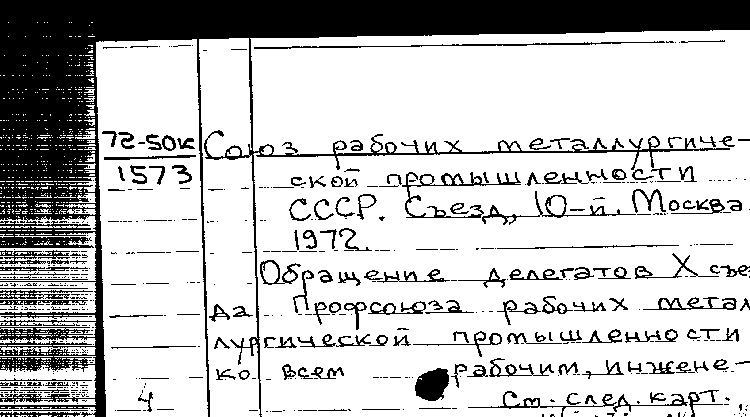 72-50к Союз рабочих металлургиче-
1573 ской промышленности
СССР. Съезд, 10-й. Москва
1972.
Обращение делегатов X съез
да Профсоюза рабочих метал
лургической промышленности
ко всем рабочим, инжене-
4 См. след. карт.,